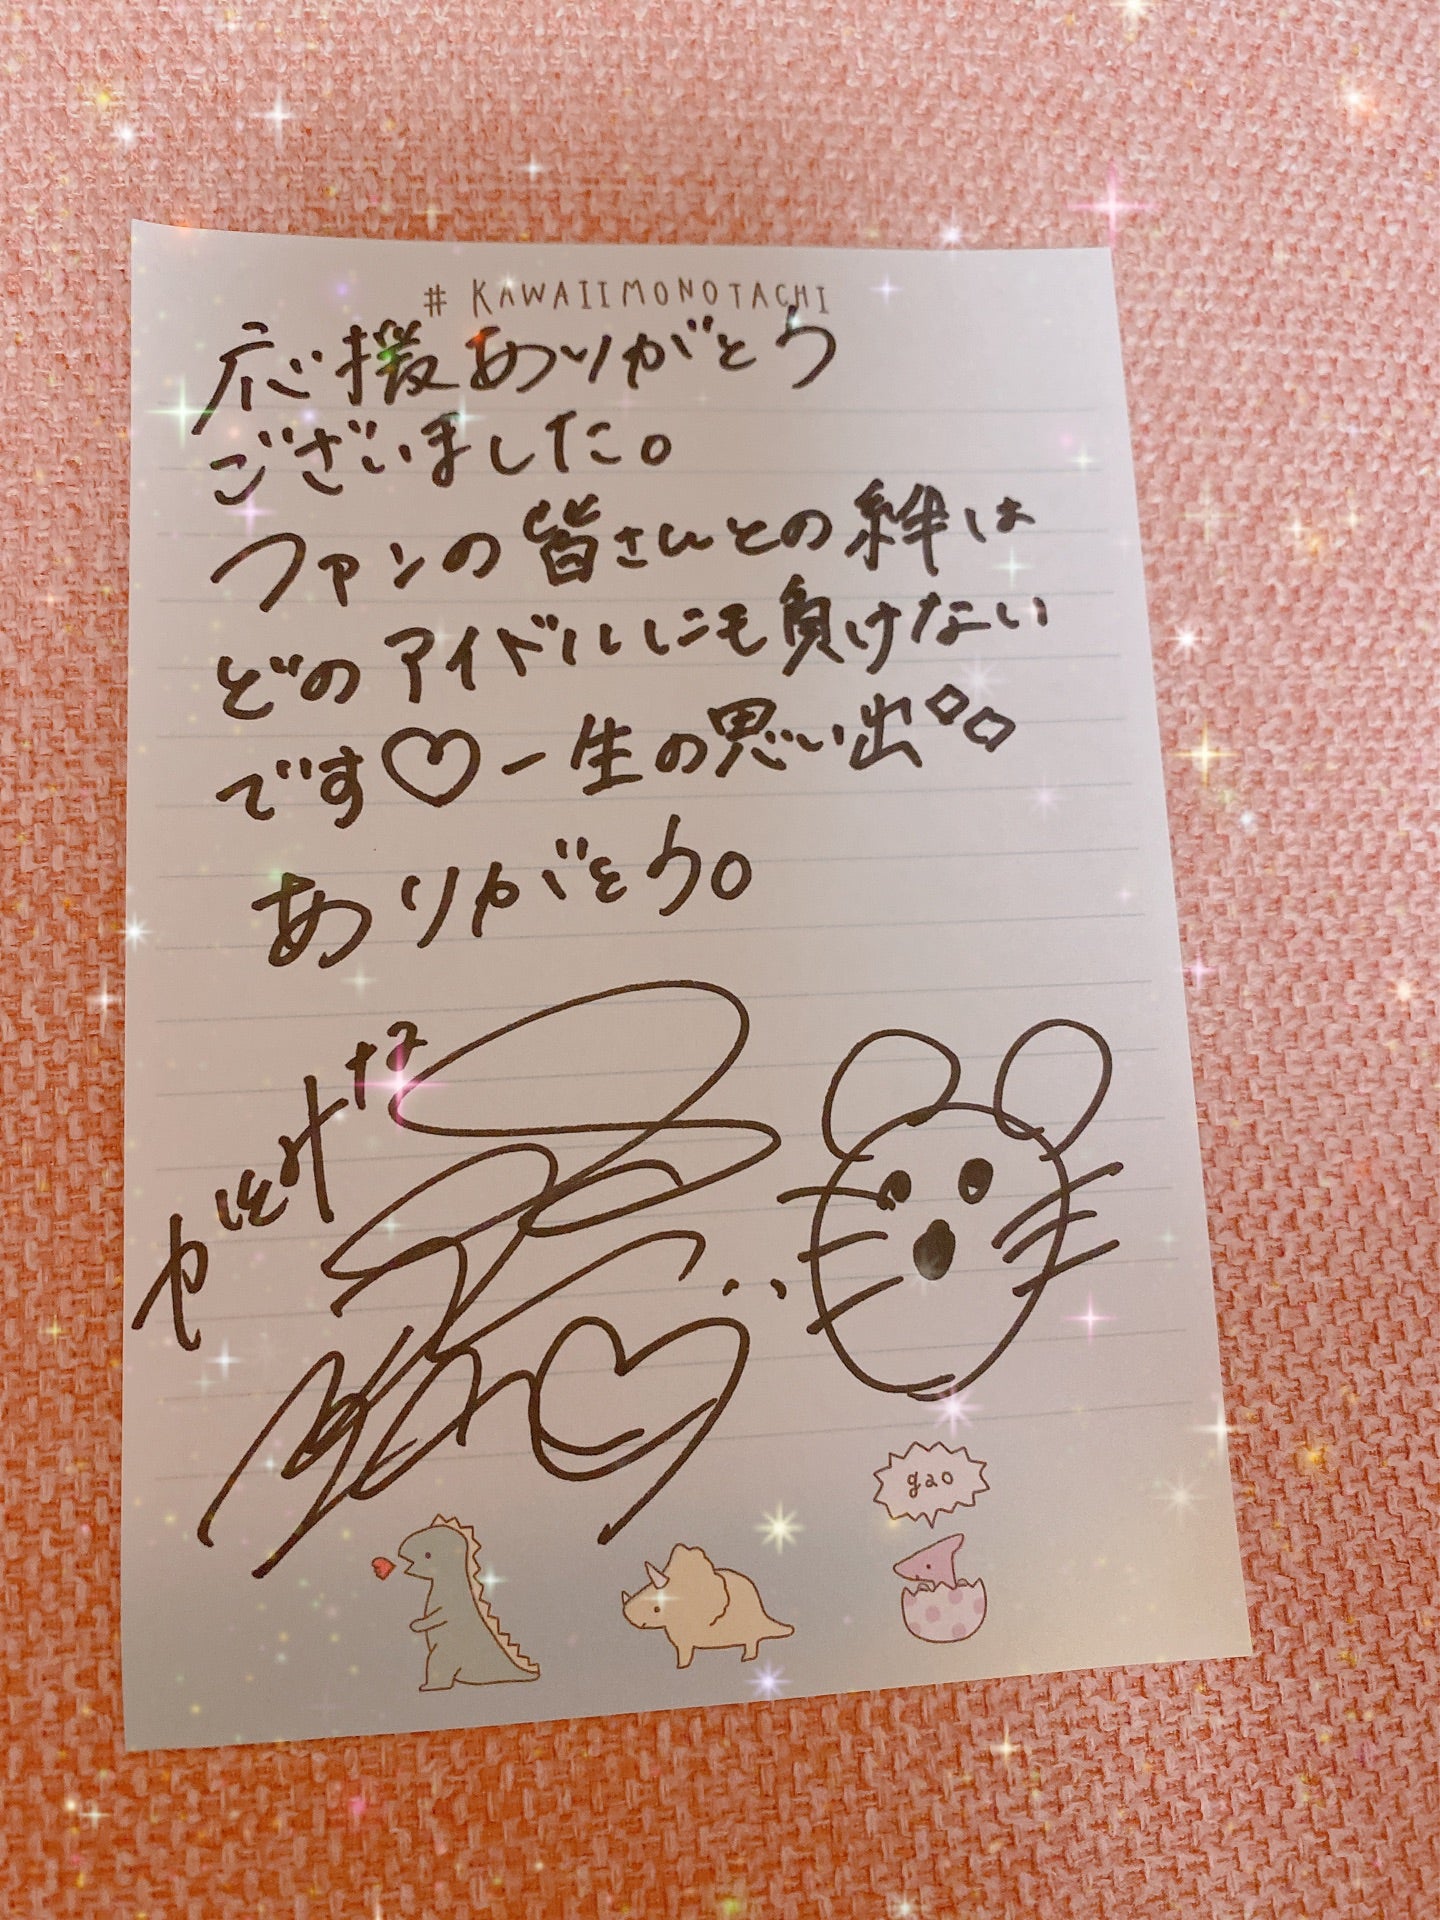 # KAWAIIMONOTACHI
応援ありがとう
ございました。
ファンの皆さんとの絆は
どのアイドルにも負けない
です♡一生の思い出◇◇
ありがとう。
gao